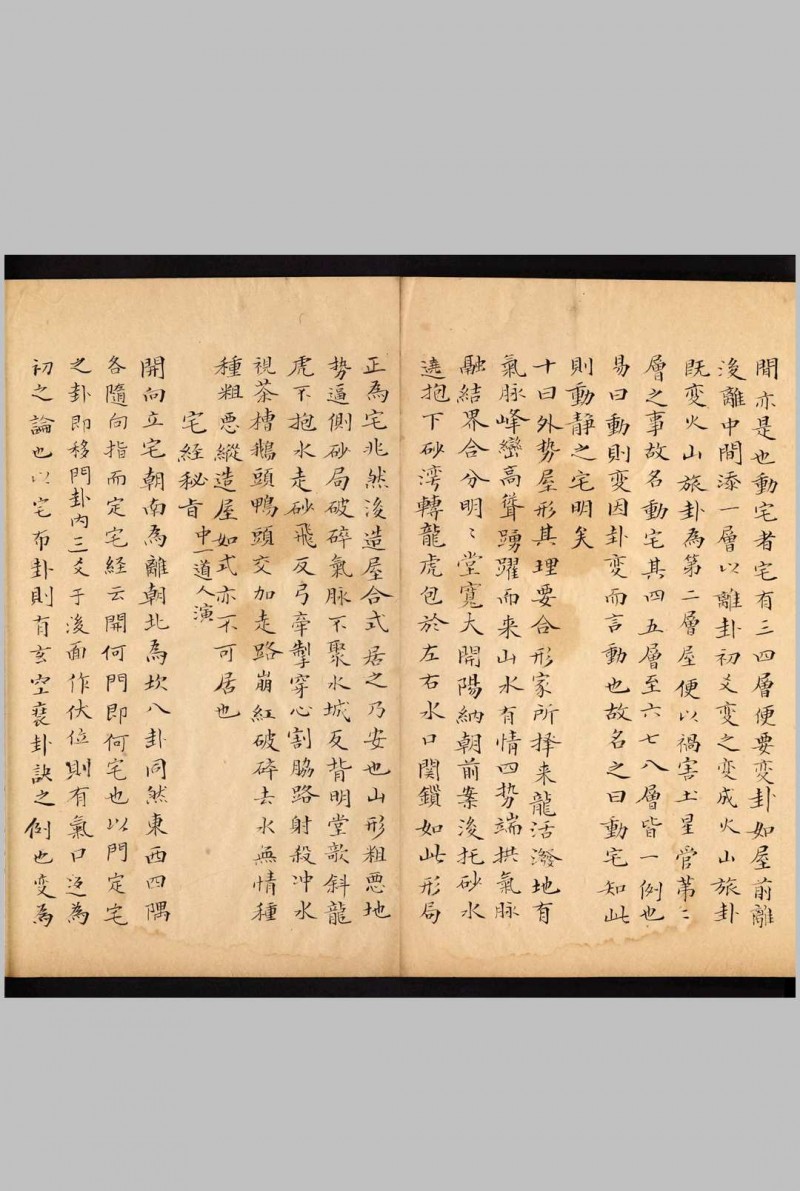 間亦是也動宅者宅有三四層便要变卦如屋前離
後離中間添一層以離卦初爻变之变成火山旅卦
既变火山旅卦為第二層屋便以禍害土星管第二
層之事故名動宅其四五層至六七八層皆一例也
易曰動則变因卦变而言動也故名之曰動宅知此
則動静之宅明矣
十曰外势屋形其理要合形家所择来龍活潑地有
氣脉峰巒高聳踴躍而来山水有情四势端拱氣脉
融結界合分明〻堂寬大開陽納朝前案後托砂水
遶抱下砂湾轉龍虎包於左右水口関鎖如此形局
正為宅兆然後造屋合式居之乃安也山形粗悪地
势逼側砂局破碎氣脉不聚水城反背明堂欹斜龍
虎不抱水走砂飛反弓牵掣穿心割脇路射殺冲水
視茶槽鵝頭鴨頭交加走路崩紅破碎去水無情種
種粗悪縱造屋如式亦不可居也
宅経秘旨 中一道人演
開向立宅朝南為離朝北為坎八卦同然東西四隅
各隨向指而定宅経云開何門即何宅也以門定宅
之卦即移門卦内三爻于後面作伏位則有氣口逆為
初之論也以宅布卦則有玄空裝卦訣之例也变為